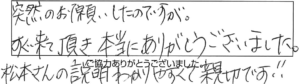 突然のお願いしたのですが。
来て頂き本当にありがとうございました。
ご協力ありがとうございました
松本さんの説明わかりやすくて親切です!!